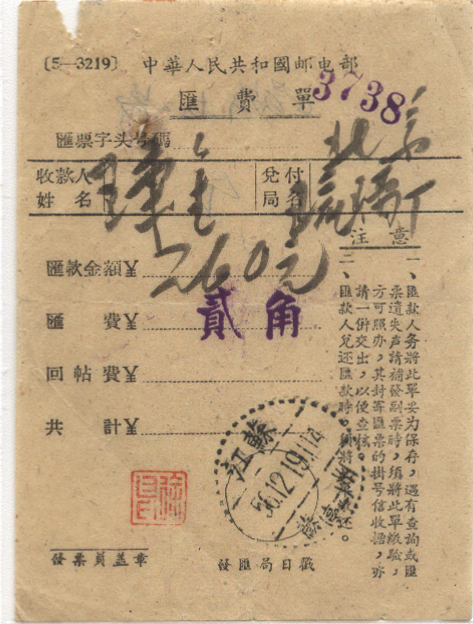 〔5—3219〕 中華人民共和國邮电部
匯費單
3738
匯票字头号碼
收款人姓名
兌付局名 北京
琉璃厂
匯款金額¥ 260元
匯費¥ 貳角
回帖費¥
共計¥
注意
一、匯款人务將此單妥为保存，遇有查詢或匯
票遺失声請補發副票時，須將此單繳驗，
方可照办，其封寄匯票的掛号信收据，亦
請一併交出，以便查核。
二、匯款人兌还匯款時，須將
还。
江蘇
56.12.19
發票員盖章
發匯局日戳